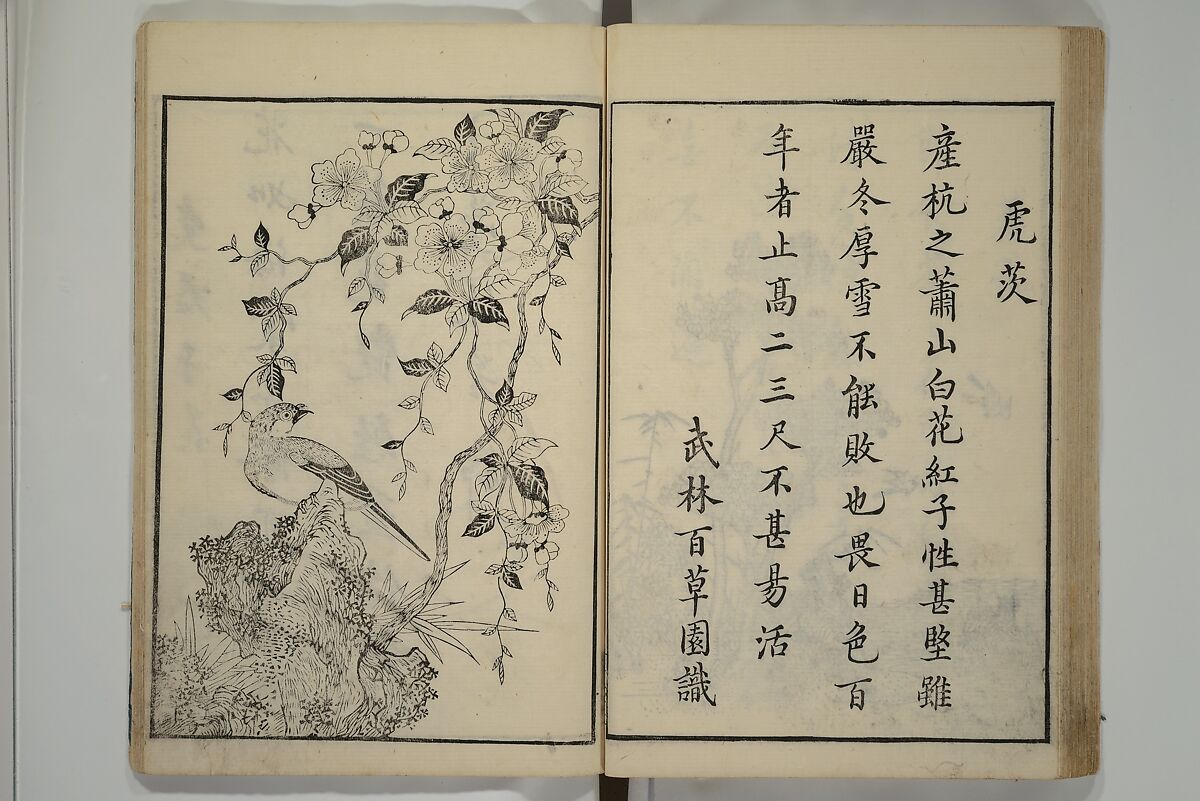 虎茨
産杭之蕭山白花紅子性甚堅雖
嚴冬厚雪不能敗也畏日色百
年者止髙二三尺不甚昜活
武林百草園識